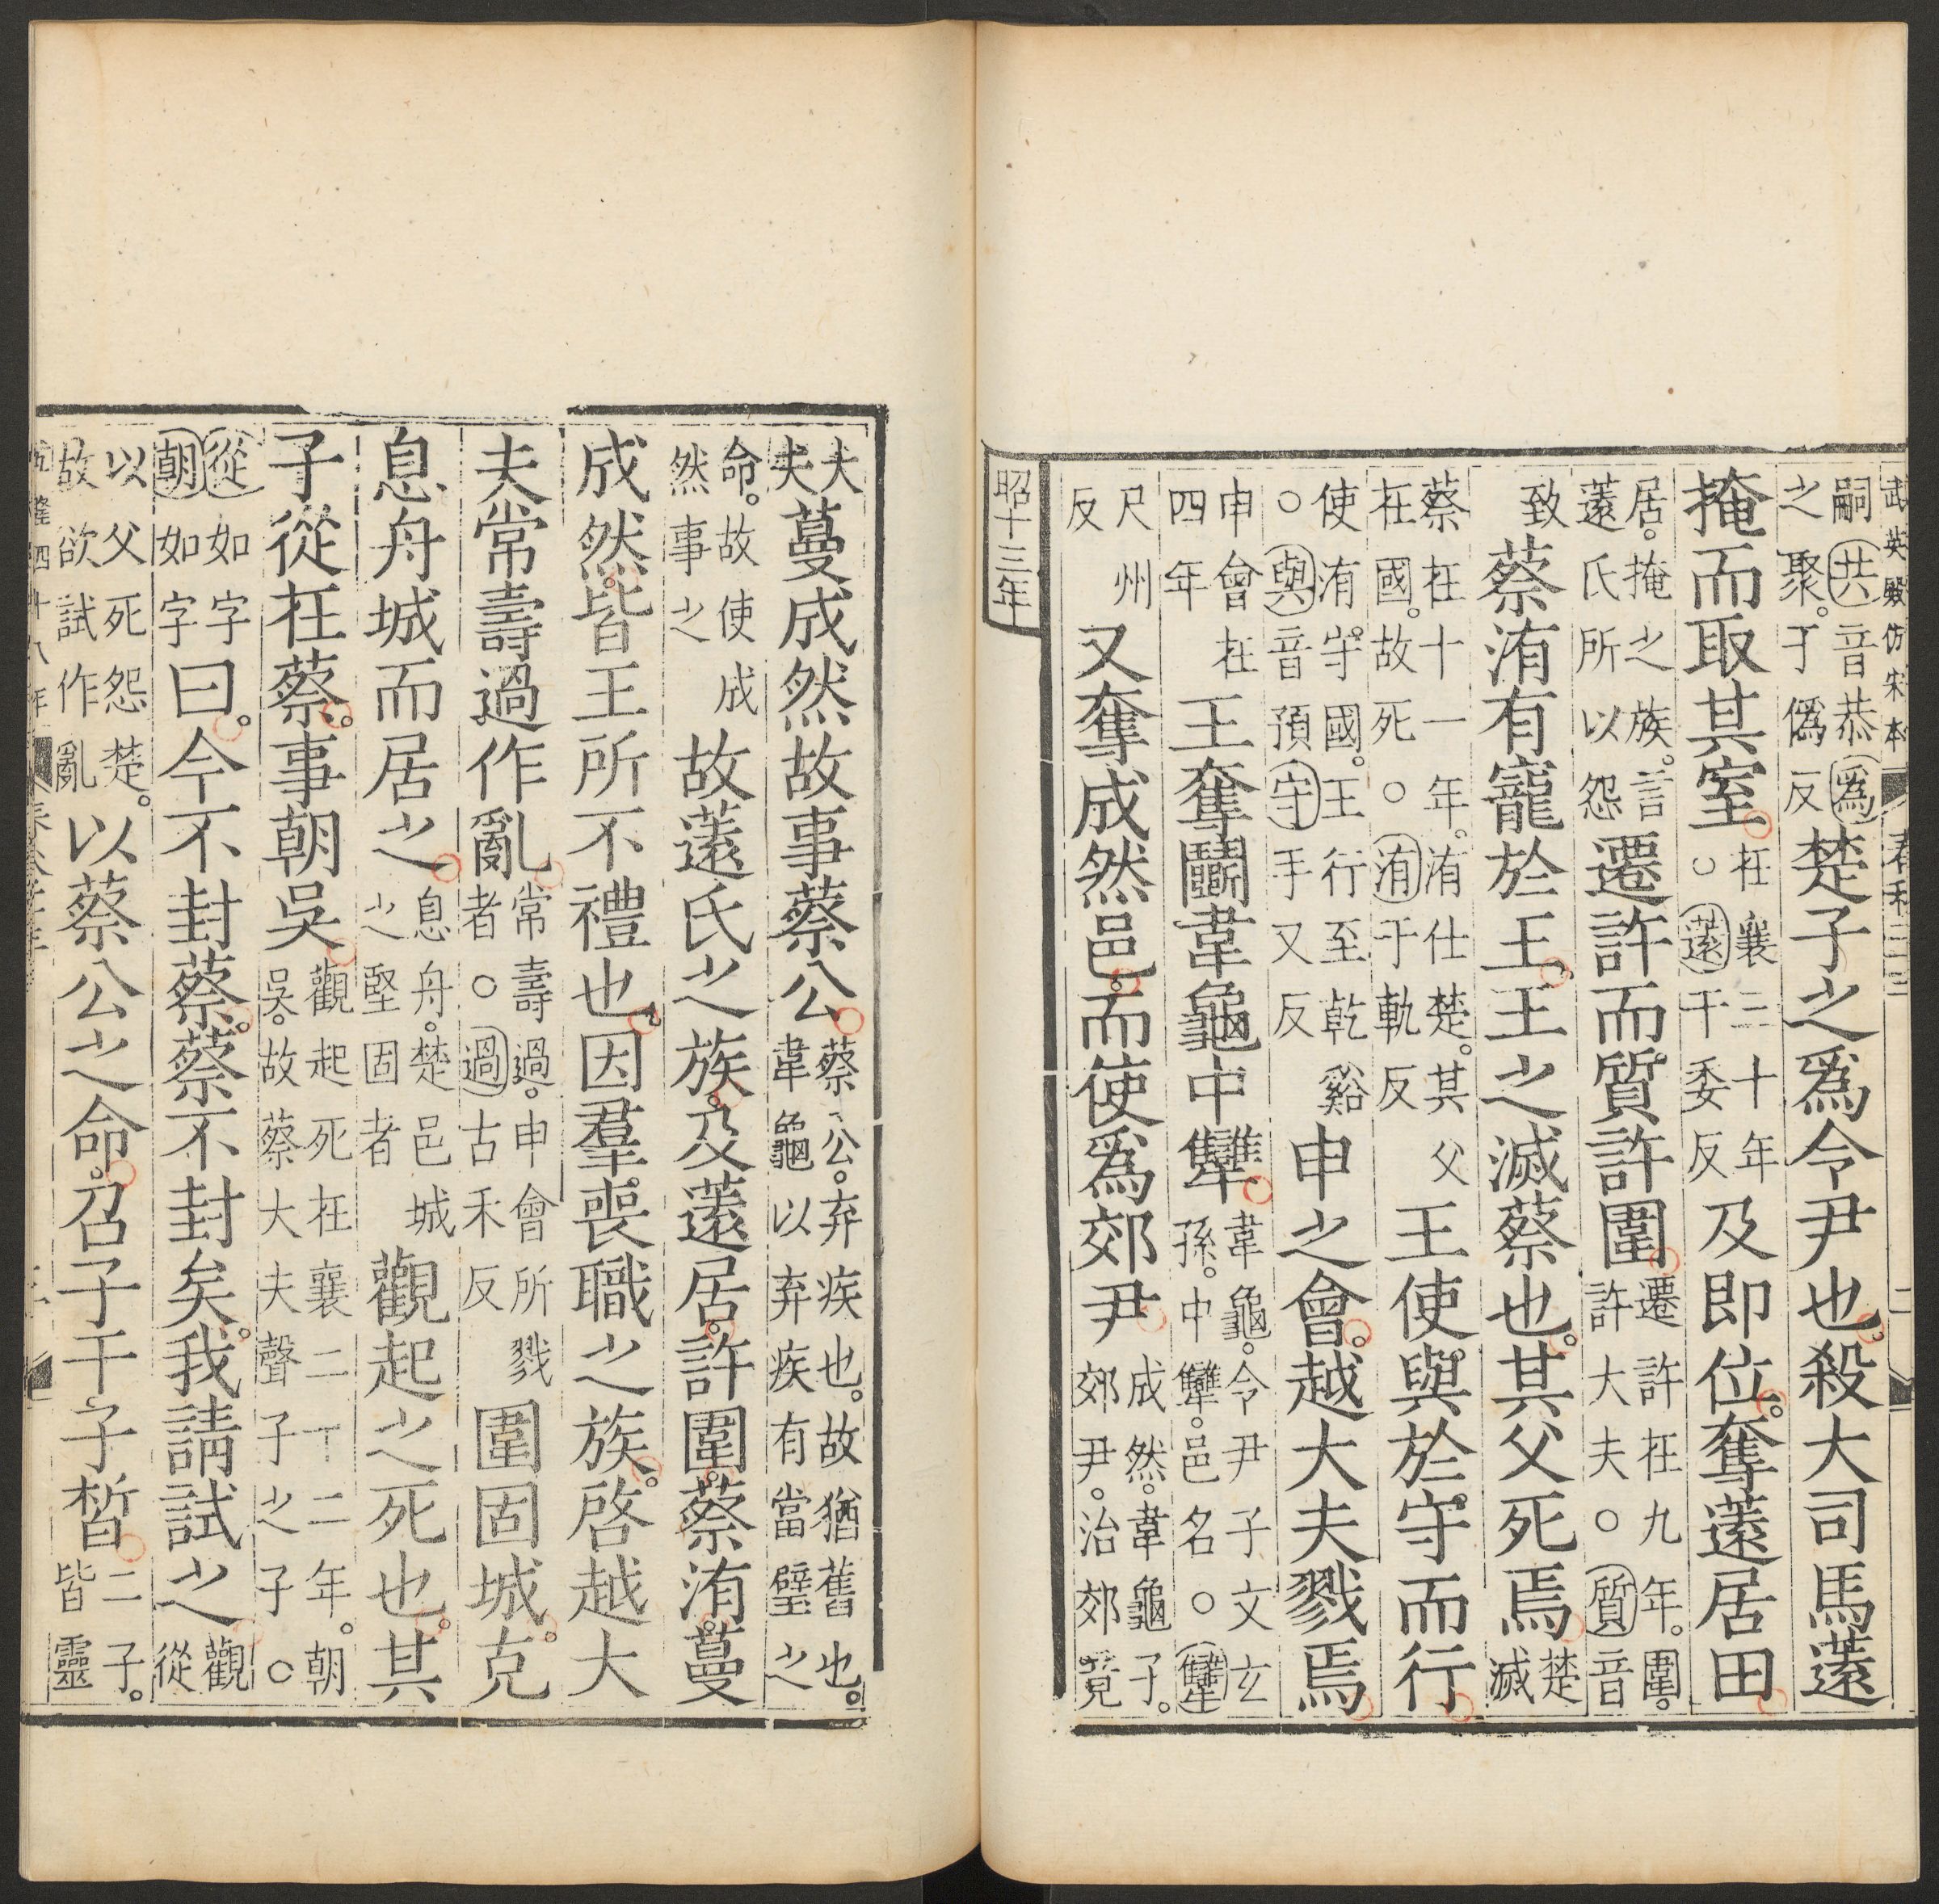 武英殿仿宋本 春秋二三 二
嗣共音恭爲之聚。于僞反楚子之爲令尹也。殺大司馬薳
掩而取其室。在襄三十年○薳于委反及即位。奪薳居田。
居。掩之族。言薳氏所以怨遷許而質許圍。遷許在九年。圍。許大夫○質音
致蔡洧有寵於王。王之滅蔡也。其父死焉。楚滅
蔡在十一年。洧仕楚。其父在國。故死○洧于軌反王使與於守而行。
使洧守國。王行至乾谿○與音預守手又反申之會。越大夫戮焉。
申會在四年王奪鬭韋龜中犨。韋龜。令尹子文玄孫。中犨。邑名○犨
尺州反又奪成然邑。而使爲郊尹。成然。韋龜子。郊尹。治郊竟
昭十三年
大夫蔓成然故事蔡公。蔡公。弃疾也。故猶舊也。韋龜以弃疾有當璧之
命。故使成然事之故薳氏之族。及薳居。許圍。蔡洧。蔓
成然。皆王所不禮也。因羣喪職之族。啓越大
夫常壽過作亂。常壽過。申會所戮者○過古禾反圍固城。克
息舟城而居之。息舟。楚邑城之堅固者觀起之死也。其
子從在蔡。事朝吳。觀起死在襄二十二年。朝吳。故蔡大夫聲子之子○
從如字朝如字曰。今不封蔡。蔡不封矣。我請試之。觀從
以父死怨楚。故欲試作亂以蔡公之命。召子干子晳。二子。皆靈